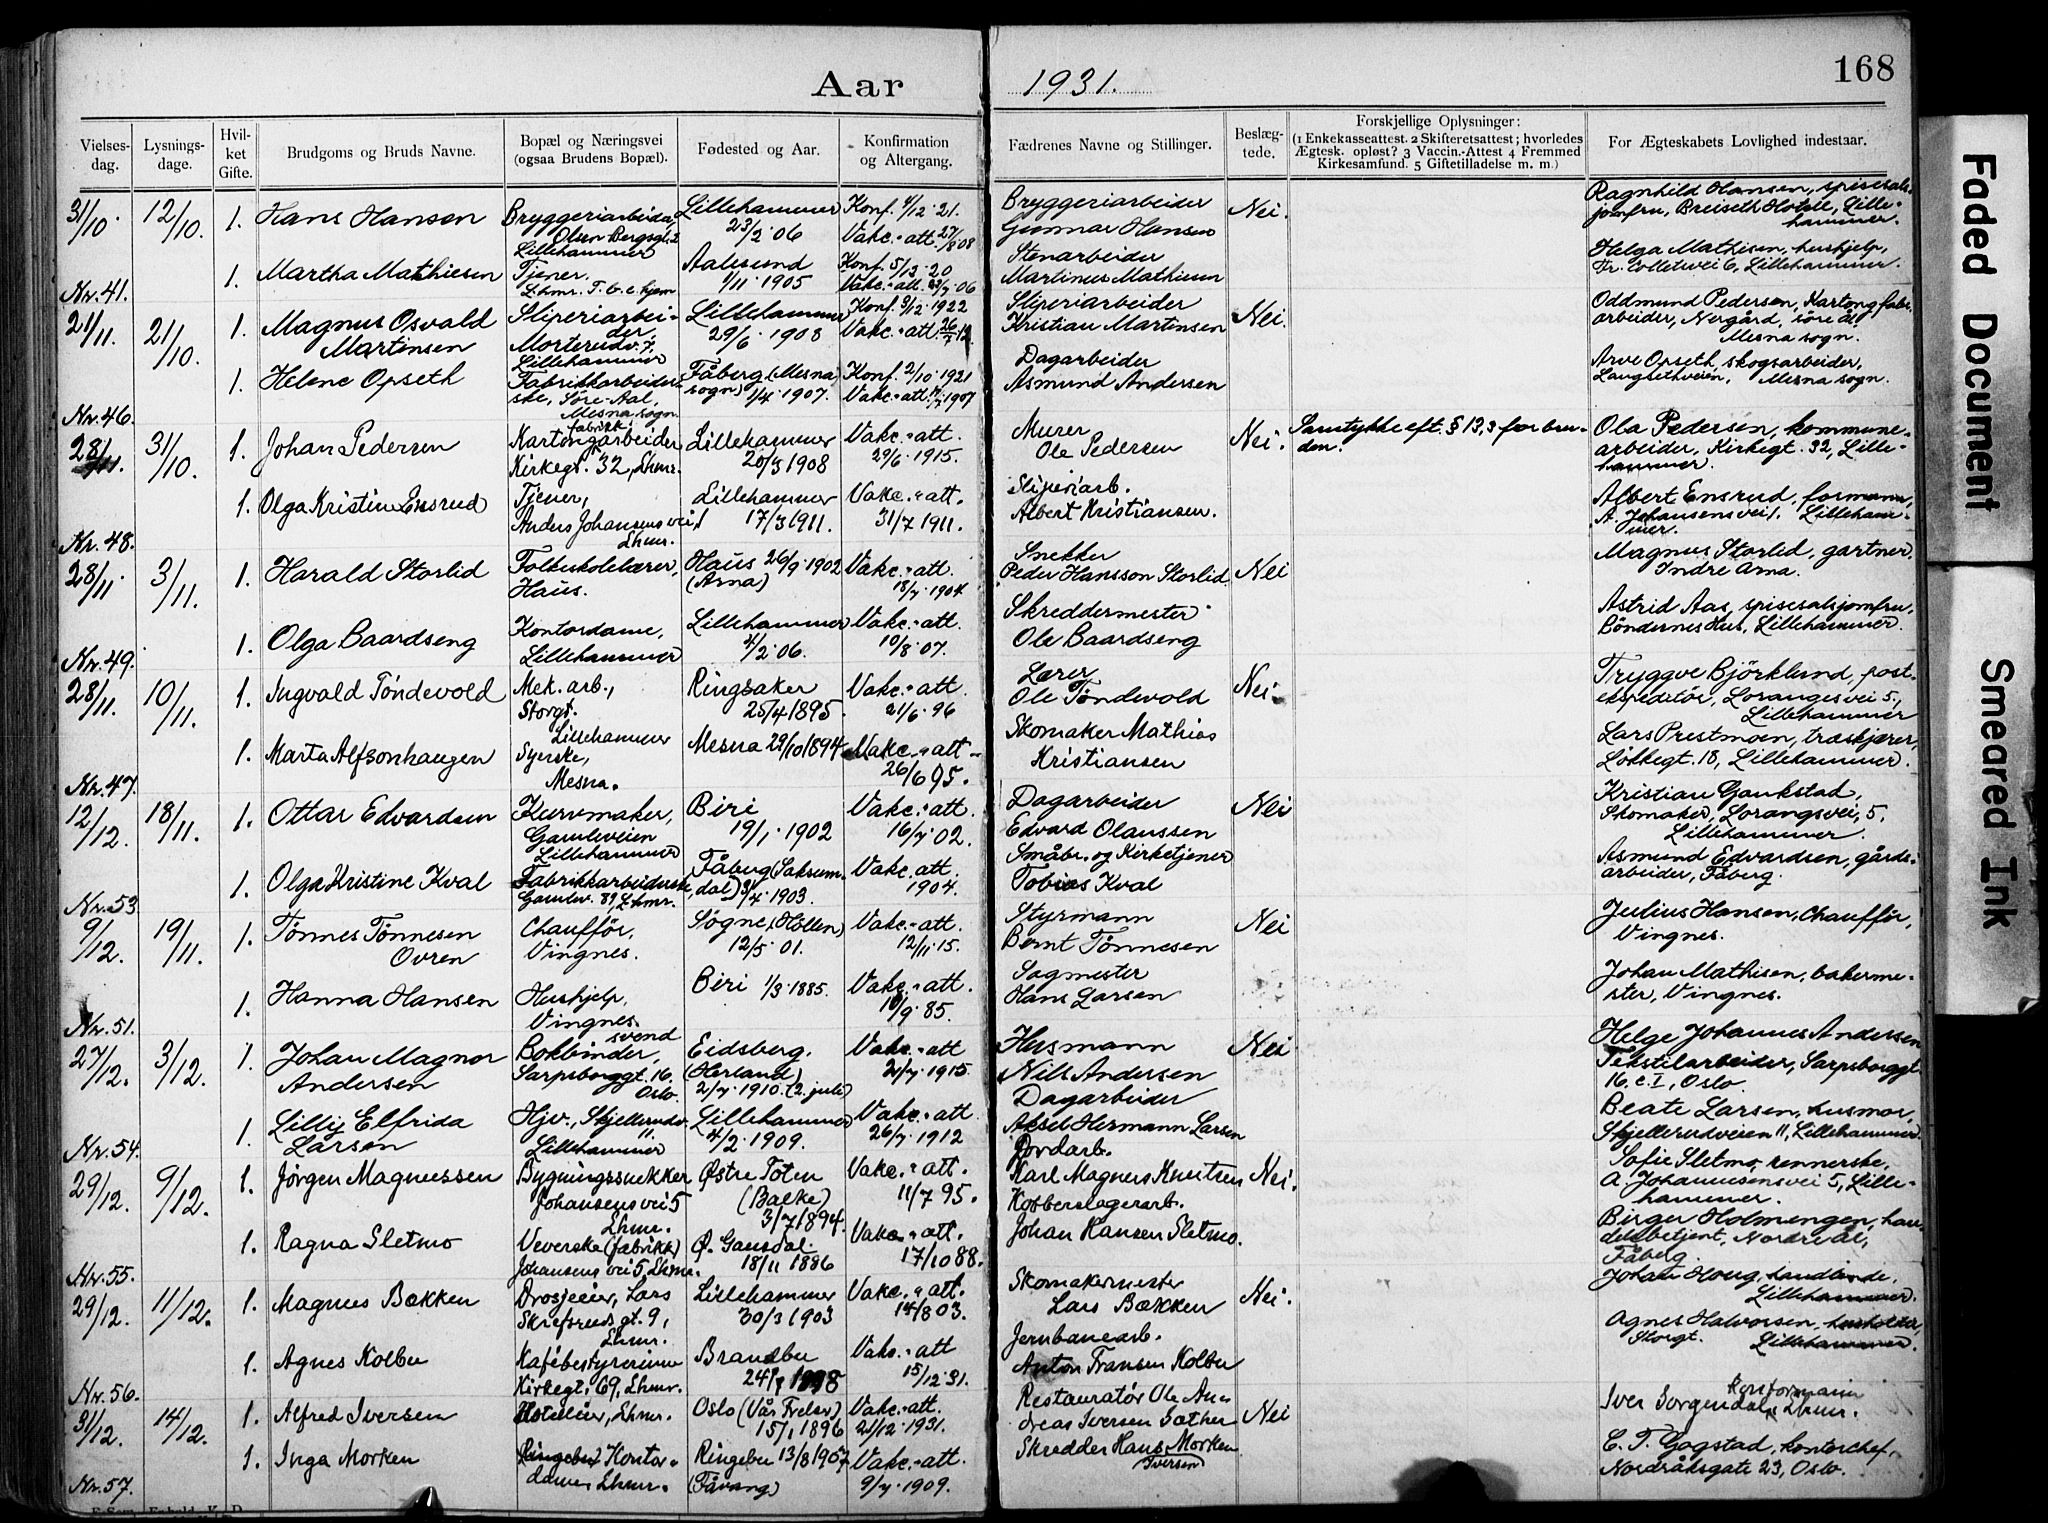 168
Aar 1931.
Vielses-dag.
Lysnings-dage.
Hvil-ket Gifte.
Brudgoms og Bruds Navne.
Bopæl og Næringsvei (ogsaa Brudens Bopæl).
Fødested og Aar.
Konfirmation og Altergang.
Fædrenes Navne og Stillinger.
Beslæg-tede.
Forskjellige Oplysninger:
(1 Enkekasseattest. 2 Skifteretsattest; hvorledes
Ægtesk. opløst? 3 Vaccin.-Attest 4 Fremmed
Kirkesamfund. 5 Giftetilladelse m. m.)
For Ægteskabets Lovlighed indestaar.
31/10. 12/10. 1. Hans Hansen Bryggeriarbeider Lillehammer Konf. 4/12 21. Bryggeriarbeider Nei. Ragnhild Hansen, spisesals-
Olsen Bergsgt. 2 23/2 06 Vakc.-att. 27/8 08 Gunnar Hansen jomfru, Breiseth Hotell, Lille-
Lillehammer hammer.
1. Martha Mathiesen Tjener. Aalesund Konf. 5/12 20 Stenarbeider Helga Mathisen, hushjelp,
Nr. 41. 1/11 1905 Martinus Mathisen Lillehammer.
21/11. 21/10. 1. Magnus Osvald Sliperiarbei- Lillehammer Konf. 3/12 1922 Sliperiarbeider Nei. Oddmund Pedersen, Kartongfabr.
Martinsen der 29/6 1908 Vakc.-att. Kristian Martinsen arbeider, Nergård, søre Ål
Morterudv. 7. Lillehammer Mesna sogn.
1. Helene Opseth Fabrikkarbeider- Fåberg (Mesna Konf. 2/10 1921 Dagarbeider Arve Opseth, skogsarbeider,
Nr. 46. ske, Søre-Aal, sogn) 1/4 1907. Vakc.-att. 1907 Asmund Andersen Langsethveien, Mesna sogn.
Mesna sogn.
28/11. 31/10. 1. Johan Pedersen Kartongfabrikkarbeider Lillehammer Vakc.-att. Murer Nei. Samtykke eft. § 13,3 for bru- Ola Pedersen, kommune-
Kirkegt. 32, Lhmr. 20/3 1908 29/6 1915. Ole Pedersen den. arbeider, Kirkegt. 32, Lille-
hammer.
1. Olga Kristine Ensrud Tjener, Lillehammer Vakc.-att. Sliperiarb. Albert Ensrud, formann,
Nr. 48. Anders Johansens vei 1 17/3 1911. 31/7 1911. Albert Kristiansen. A. Johansensvei 1. Lilleham-
Lhmr. mer.
28/11. 3/11. 1. Harald Storlid Folkeskolelærer, Haus 26/9 1902 Vakc.-att. Snekker Nei Magnus Storlid, gartner.
Haus. (Arna) 18/7 1904 Peder Hansson Storlid Indre Arna.
1. Olga Baardseng Kontordame, Lillehammer Vakc.-att. Skreddermester Astrid Aas, spisesalsjomfru,
Nr. 49. Lillehammer 4/2 06. 10/8 07. Ole Baardseng Bøndernes Hus, Lillehammer.
28/11. 10/11. 1. Ingvald Tøndevold Mek. arb., Ringsaker Vakc.-att Lærer Nei. Tryggve Björklund, post-
Storgt. Lillehammer 25/4 1895. 21/6 96 Ole Tøndevold ekspeditør, Lorangesvei 5,
Lillehammer
1. Marta Alfsonhaugen Syerske, Mesna 29/10 1894 Vakc.-att. Skomaker Mathias Lars Prestmoen, træskjærer,
Nr. 47. Mesna. 26/6 95. Kristiansen Løkkegt. 18, Lillehammer.
12/12. 18/11. 1. Ottar Edvardsen Kurvmaker, Biri Vakc.-att. Dagarbeider Nei Kristian Gaukstad,
Gamleveien 19/1 1902 16/7 02. Edvard Olaussen Skomaker, Lorangsvei, 5.
Lillehammer Lillehammer.
1. Olga Kristine Kval Fabrikkarbeiderske Fåberg (Saksum- Vakc. att. Småbr. og Kirketjener Asmund Edvardsen, gårds-
Nr. 53 Gamlev. 89, Lhmr. dal) 3/4 1903. 1904. Tobias Kval arbeider, Fåberg.
9/12. 19/11. 1. Tønnes Tønnesen Chauffør, Søgne, (Höllen) Vakc.-att. Styrmann Nei Julius Hansen, Chauffør,
Ovren Vingnes. 12/5 01. 12/11 15. Bernt Tønnesen Vingnes.
1. Hanna Hansen Hushjelp, Biri 1/3 1885. Vakc.-att. Sagmester Johan Mathisen, bakerme-
Nr. 51. Vingnes. 10/9 85. Hans Larsen ster, Vingnes.
27/12. 3/12. 1. Johan Magnar Bokbindersvend, Eidsberg. Vakc.-att Husmann Nei Helge Johannes Andersen
Andersen Sarpsborggt. 16. (Herland) 21/7 1915. Nils Andersen Tekstilarbeider, Sarpsborggt.
Oslo. 2/7 1910. (2. juli) 16. c. I, Oslo.
1. Lilly Elfrida Hjv., Skjellerudv. Lillehammer Vakc.-att. Dagarbeider Beate Larsen, husmor,
Nr. 54. Larsen 11. Lillehammer 4/2 1909. 26/7 1912 Aksel Hermann Larsen Skjellerudveien 11, Lillehammer.
29/12. 9/12. 1. Jørgen Magnussen Bygningssnekker Østre Toten Vakc.-att. Jordarb. Sofie Sletmo, rennerske,
Johansens vei 5 (Balke) 11/7 95. Karl Magnus Knutsen Nei. A. Johannesensvei 5, Lille-
Lhmr. 3/7 1894. hammer.
1. Ragna Sletmo Veverske (fabrikk) Ø. Gausdal. Vakc.-att. Kobberslagerarb. Birger Holmengen, han-
Nr. 55. Johansens vei 5, Lhmr. 18/11 1886 17/10 88. Johan Hansen Sletmo. delsbetjent, Nordre Ål,
Fåberg.
29/12. 11/12. 1. Magnus Bækken Drosjeeier, Lars Lillehammer Vakc.-att. Skomakermester Nei. Johan Haug, handlende.
Skrefsruds gt. 9, Lhmr. 30/3 1903 14/8 03. Lars Bækken Lillehammer.
1. Agnes Kolbu Kafébestyrerinne Brandbu Vaks.-att Jernbanearb. Agnes Halvorsen,
Nr. 56. Kirkegt. 69, Lhmr. 15/12 31. Anton Fransen Kolbu Storgt. Lillehammer.
31/12. 14/12. 1. Alfred Iversen Hoteleier, Lhmr. Oslo (Vår Frelser) Vakc.-att. Restauratør Ole An- Nei Iver Sorgendal, Lhmr.
15/1 1896 21/12 1931. dreas Iversen Sæther
1. Inga Morken Ringebu) Kontor- Ringebu 13/8 1907 Vakc.-att. Skredder Hans Morken C. T. Gogstad, kontorchef,
Nr. 57. dame, Lhmr. (Fåvang) 9/7 1909. Iversen Nordråksgate 23, Oslo.
Faded Document
Smeared Ink